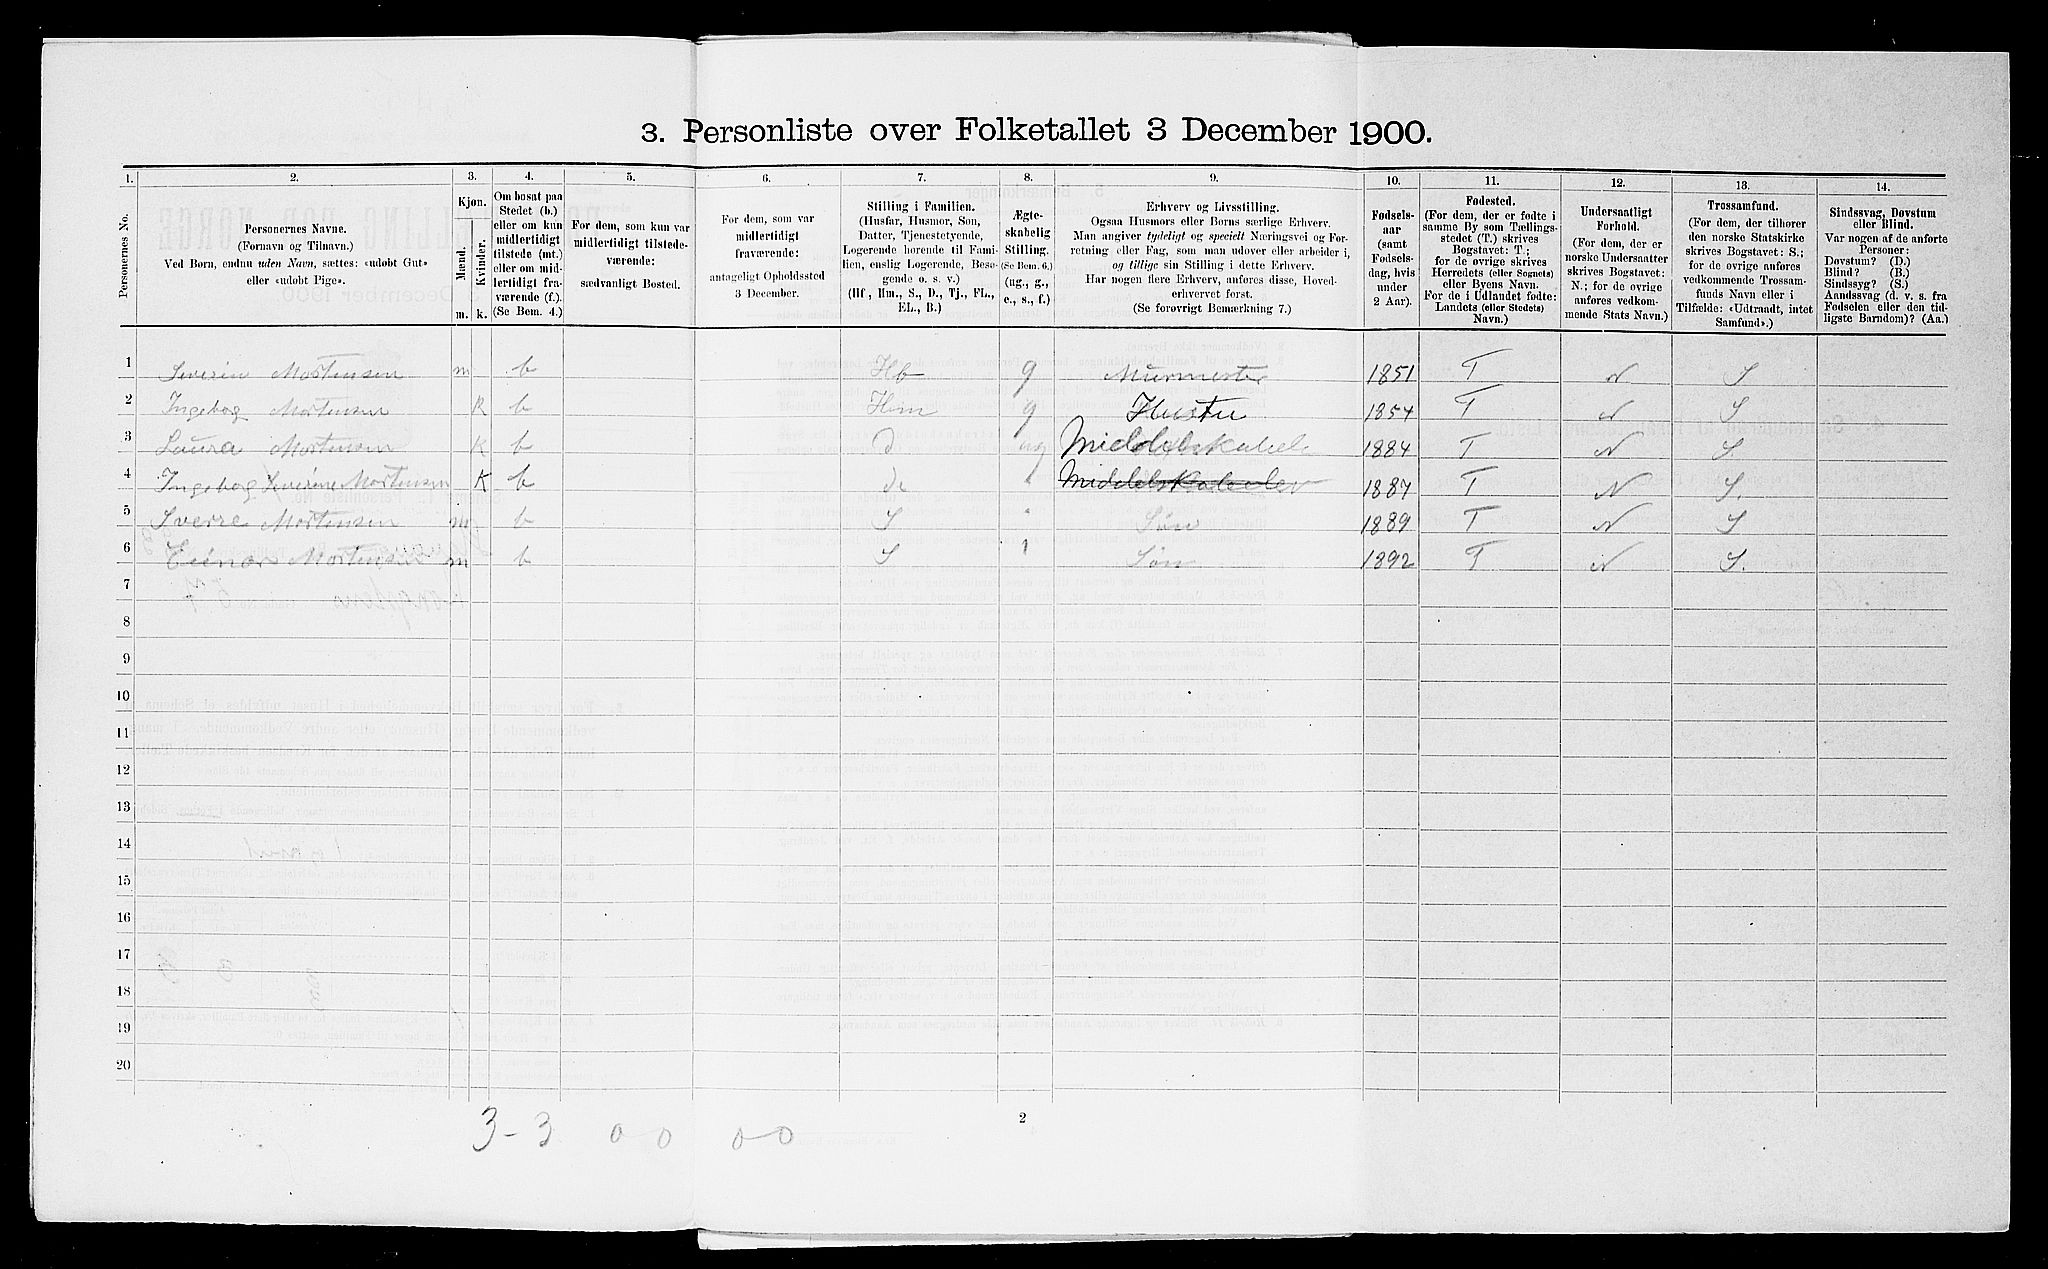 3. Personliste over Folketallet 3 December 1900.
1. 2. 3. 4. 5. 6. 7. 8. 9. 10. 11. 12. 13. 14.
Personernes No.
Personernes Navne.
(Fornavn og Tilnavn.)
Ved Børn, endnu uden Navn, sættes: «udøbt Gut»
eller «udøbt Pige».
Kjøn.
Mænd.
Kvinder.
m. k.
Om bosat paa
Stedet (b.)
eller om kun
midlertidigt
tilstede (mt.)
eller om mid-
lertidigt fra-
værende (f.)
(Se Bem. 4.)
For dem, som kun var
midlertidigt tilstede-
værende:
sædvanligt Bosted.
For dem, som var
midlertidigt
fraværende:
antageligt Opholdssted
3 December.
Stilling i Familien.
(Husfar, Husmor, Søn,
Datter, Tjenestetyende,
Logerende hørende til Fami-
lien, enslig Logerende, Besø-
gende o. s. v.)
(Hf, Hm., S., D., Tj., FL.,
EL., B.)
Ægte-
skabelig
Stilling.
(Se Bem. 6.)
(ug., g.,
e., s., f.)
Erhverv og Livsstilling.
Ogsaa Husmors eller Børns særlige Erhverv.
Man angiver tydeligt og specielt Næringsvei og For-
retning eller Fag, som man udøver eller arbeider i,
og tillige sin Stilling i dette Erhverv.
Har nogen flere Erhverv, anføres disse, Hoved-
erhvervet først.
(Se forøvrigt Bemærkning 7.)
Fødsels-
aar
(samt
Fødsels-
dag, hvis
under
2 Aar).
Fødested.
(For dem, der er fødte i
samme By som Tællings-
stedet (T.) skrives
Bogstavet: T.;
for de øvrige skrives
Herredets (eller Sognets)
eller Byens Navn.
For de i Udlandet fødte:
Landets (eller Stedets)
Navn.)
Undersaatligt
Forhold.
(For dem, der er
norske Undersaatter
skrives Bogstavet:
N.; for de øvrige
anføres vedkom-
mende Stats Navn.)
Trossamfund.
(For dem, der tilhører
den norske Statskirke
skrives Bogstavet: S.;
for de øvrige anføres
vedkommende Trossam-
funds Navn eller i
Tilfælde: «Udtraadt, intet
Samfund».)
Sindssvag, Døvstum
eller Blind.
Var nogen af de anførte
Personer:
Døvstum? (D.)
Blind? (B.)
Sindssyg? (S.)
Aandssvag (d. v. s. fra
Fødselen eller den tid-
ligste Barndom)? (Aa.)
1 Severin Mortensen m b Hb g Murmester 1851 T N S
2 Ingebog Mortensen K b Hm g Hustru 1854 T N S
3 Laura Mortensen K b D ug 1884 T N S.
4 Ingebog Severine Mortensen K b D " Middelskoleelev 1887 T N S.
5 Sverre Mortensen m b S " Søn 1889 T N S
6 Einar Mortensen m b S " Søn 1892 T N S.
7
8
9
10
11
12
13
14
15
16
17
18
19
20
3-3 0 0 0 0
2